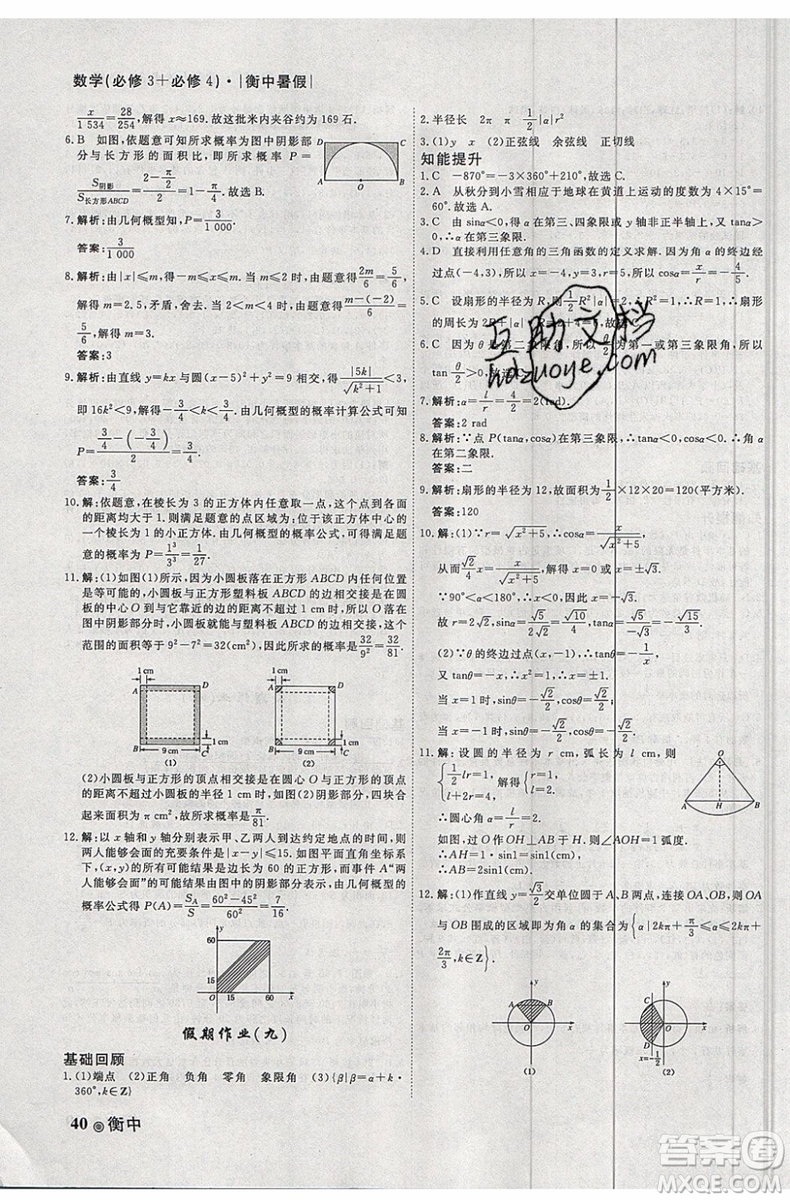 数学(必修3＋必修4)·|衡中暑假|
x/1 534＝28/254，解得 x≈169. 故这批米内夹谷约为 169 石.
6. B 如图，依题意可知所求概率为图中阴影部分与长方形的面积比，即所求概率 P＝
S阴影/S长方形ABCD＝(2－π/2)/2＝1－π/4. 故选 B.
7. 解析：由几何概型知，P＝3/1 000.
答案：3/1 000
8. 解析：由|x|≤m，得－m≤x≤m，当 m≤2 时，由题意得 2m/6＝5/6，解得 m＝2.5，矛盾，舍去. 当 2＜m＜4 时，由题意得 [m－(－2)]/6＝
5/6，解得 m＝3.
答案：3
9. 解析：由直线 y＝kx 与圆(x－5)²＋y²＝9 相交，得 |5k|/√(k²＋1)＜3，
即 16k²＜9，解得－3/4＜k＜3/4. 由几何概型的概率计算公式可知
P＝[3/4－(－3/4)]/2＝3/4.
答案：3/4
10. 解：依题意，在棱长为 3 的正方体内任意取一点，这个点到各面的距离均大于 1. 则满足题意的点区域为：位于该正方体中心的一个棱长为 1 的小正方体. 由几何概型的概率公式，可得满足题意的概率为 P＝1³/3³＝1/27.
11. 解：(1)如图(1)所示，因为小圆板落在正方形 ABCD 内任何位置是等可能的，小圆板与正方形塑料板 ABCD 的边相交接是在圆板的中心到与它靠近的边的距离不超过 1 cm 时，而它与中心落在图中阴影部分时，小圆板就能与塑料板 ABCD 的边相交接，这个范围的面积等于 9²－7²＝32(cm²)，因此所求的概率是 32/9²＝32/81.
1 cm A D B C 9 cm 1 cm (1)
1 cm A D B C 9 cm 1 cm (2)
(2)小圆板与正方形的顶点相交接是在圆心 O 与正方形的顶点的距离不超过小圆板的半径 1 cm 时，如图(2)阴影部分，四块合起来面积为 π cm²，故所求概率是 π/81.
12. 解：以 x 轴和 y 轴分别表示甲、乙两人到达约定地点的时间，则两人能够会面的充要条件是|x－y|≤15. 如图平面直角坐标系下，(x，y)的所有可能结果是边长为 60 的正方形，而事件 A“两人能够会面”的可能结果由图中的阴影部分表示. 由几何概型的概率公式得 P(A)＝SA/S＝(60²－45²)/60²＝7/16.
y 60 15 O 15 60 x
假期作业(九)
基础回顾
1. (1)端点 (2)正角 负角 零角 象限角 (3){β|β＝α＋k·
360°，k∈Z}
40 衡中
2. 半径长 2π π 1/2|α|r²
3. (1)y x (2)正弦线 余弦线 正切线
知能提升
1. C －870°＝－3×360°＋210°，故选 C.
2. A 从秋分到小雪相应于地球在黄道上运动的度数为 4×15°＝
60°. 故选 A.
3. C 由 sinα＜0，得 α 在第三、四象限或 y 轴非正半轴上，tanα＞0，∴α 在第三象限.
4. D 直接利用任意角的三角函数的定义求解. 因为角 α 的终边经过点(－4，3)，所以 x＝－4，y＝3，r＝5，所以 cosα＝x/r＝－4/5.
5. C 设扇形的半径为 R，则 1/2R²|α|＝2，∴R²＝1，∴R＝1，∴扇形的周长为 2R＋|α|·R＝2＋4＝6. 故选 C.
6. C 因为 θ 是第二象限角，所以 θ/2 为第一或第三象限角，所以
tan θ/2＞0. 故选 C.
7. 解析：α＝l/r＝4/2＝2(rad).
答案：2 rad
8. 解析：∵点 P(tanα，cosα)在第三象限，∴tanα＜0，cosα＜0，∴角 α 在第二象限.
答案：二
9. 解析：扇形的半径为 12，故面积为 1/2×12×20＝120(平方米).
答案：120
10. 解：(1)∵r＝√(x²＋5)，∴cosα＝x/√(x²＋5)，
从而 √2/4 x＝x/√(x²＋5)，解得 x＝0 或 x＝±√3.
∵90°＜α＜180°，∴x＜0，因此 x＝－√3.
故 r＝2√2，sinα＝√5/2√2＝√10/4，tanα＝√5/－√3＝－√15/3.
(2)∵θ 的终边过点(x，－1)，∴tanθ＝－1/x，
又∵tanθ＝－x，∴x²＝1，∴x＝±1.
当 x＝1 时，sinθ＝－√2/2，cosθ＝√2/2；
当 x＝－1 时，sinθ＝－√2/2，cosθ＝－√2/2.
11. 解：设圆的半径为 r cm，弧长为 l cm，则
{1/2 lr＝1，l＋2r＝4，解得 {r＝1，l＝2，
∴圆心角 α＝l/r＝2.
如图，过 O 作 OH⊥AB 于 H，则∠AOH＝1 弧度.
∴AH＝1·sin1＝sin1(cm)，
∴AB＝2sin1(cm).
O A H B
12. 解：(1)作直线 y＝√3/2 交单位圆于 A、B 两点，连接 OA、OB，则 OA 与 OB 围成的区域即为角 α 的终边的范围，故满足条件的角 α 的集合为{α|2kπ＋π/3≤α≤2kπ＋
2π/3，k∈Z}.
y A B O x (1)
y C D O x x＝－1/2 (2)
互助文档
hdzuoye.com
答案圈